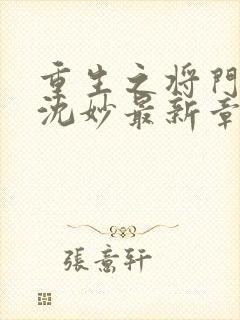 重生之将門
沈妙最新章
張意轩